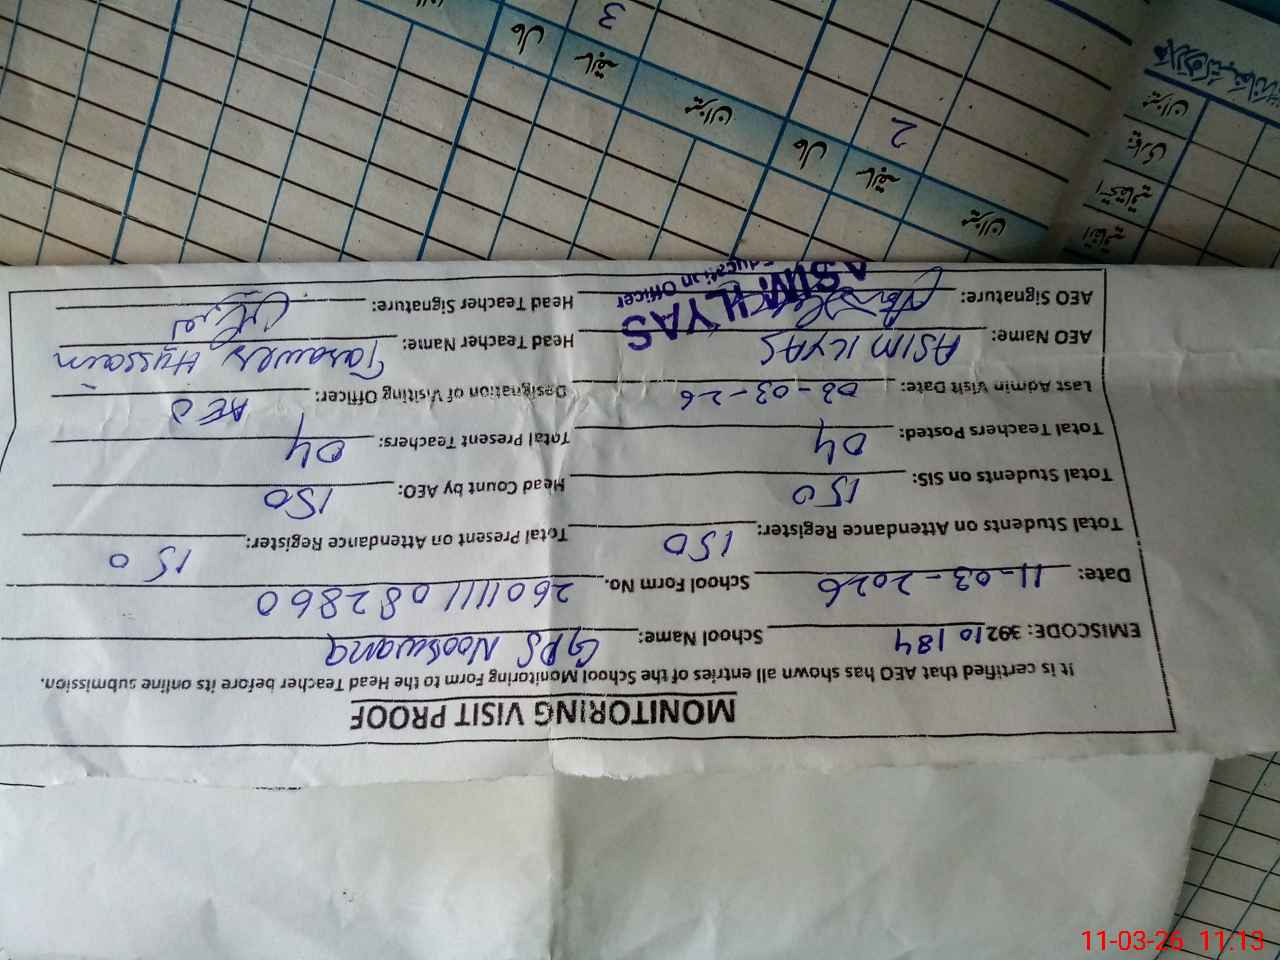 MONITORING VISIT PROOF
It is certified that AEO has shown all entries of the School Monitoring Form to the Head Teacher before its online submission.
EMISCODE: 39210184 School Name: GPS Nooswana
Date: 11-03-2026 School Form No. 2601111082860
Total Students on Attendance Register: 150 Total Present on Attendance Register: 150
Total Students on SIS: 150 Head Count by AEO: 150
Total Teachers Posted: 04 Total Present Teachers: 04
Last Admin Visit Date: 02-03-26 Designation of Visiting Officer: AEO
AEO Name: ASIM ILYAS Head Teacher Name: Tasawer Hussain
AEO Signature: Head Teacher Signature:
ASIM ILYAS
Education Officer
میزان
سابقہ
حال
میزان
سابقہ
حال
2
3
میزان
11-03-26 11:13